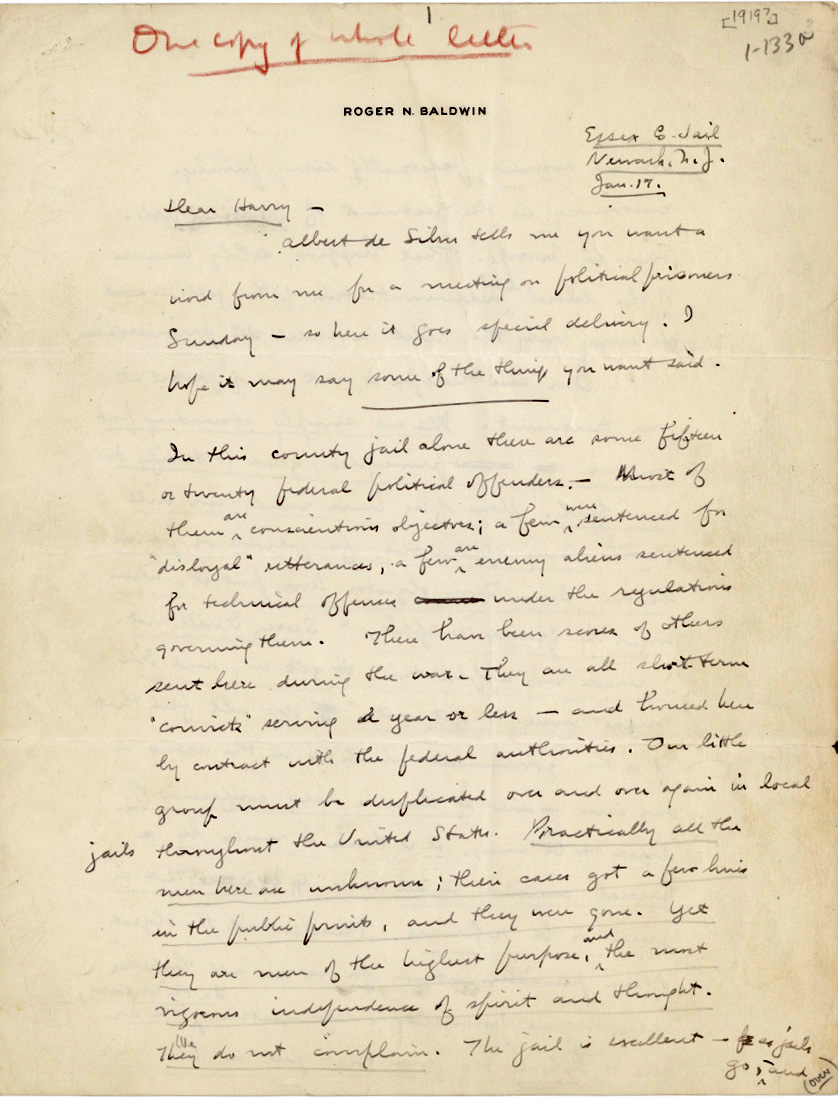 1
[1919?]
One copy of whole letter
1-133a
ROGER N. BALDWIN
Essex Co. Jail
Newark, N.J.
Jan. 17.
Dear Harry –
Albert de Silver tells me you want a
word from me for a meeting on political prisoners
Sunday – so here it goes special delivery. I
hope it may say some of the things you want said.
In this county jail alone there are some fifteen
or twenty federal political offenders. – Most of
them are conscientious objectors; a few were sentenced for
"disloyal" utterances, a few are enemy aliens sentenced
for technical offences under the regulations
governing them. There have been scores of others
sent here during the war. They are all short-term
"convicts" serving a year or less – and housed here
by contract with the federal authorities. Our little
group must be duplicated over and over again in local
jails throughout the United States. Practically all the
men here are unknown; their cases got a few lines
in the public prints, and they were gone. Yet
they are men of the highest purpose, and the most
vigorous independence of spirit and thought.
They We do not complain. The jail is excellent – as jails
go, – and
(over)